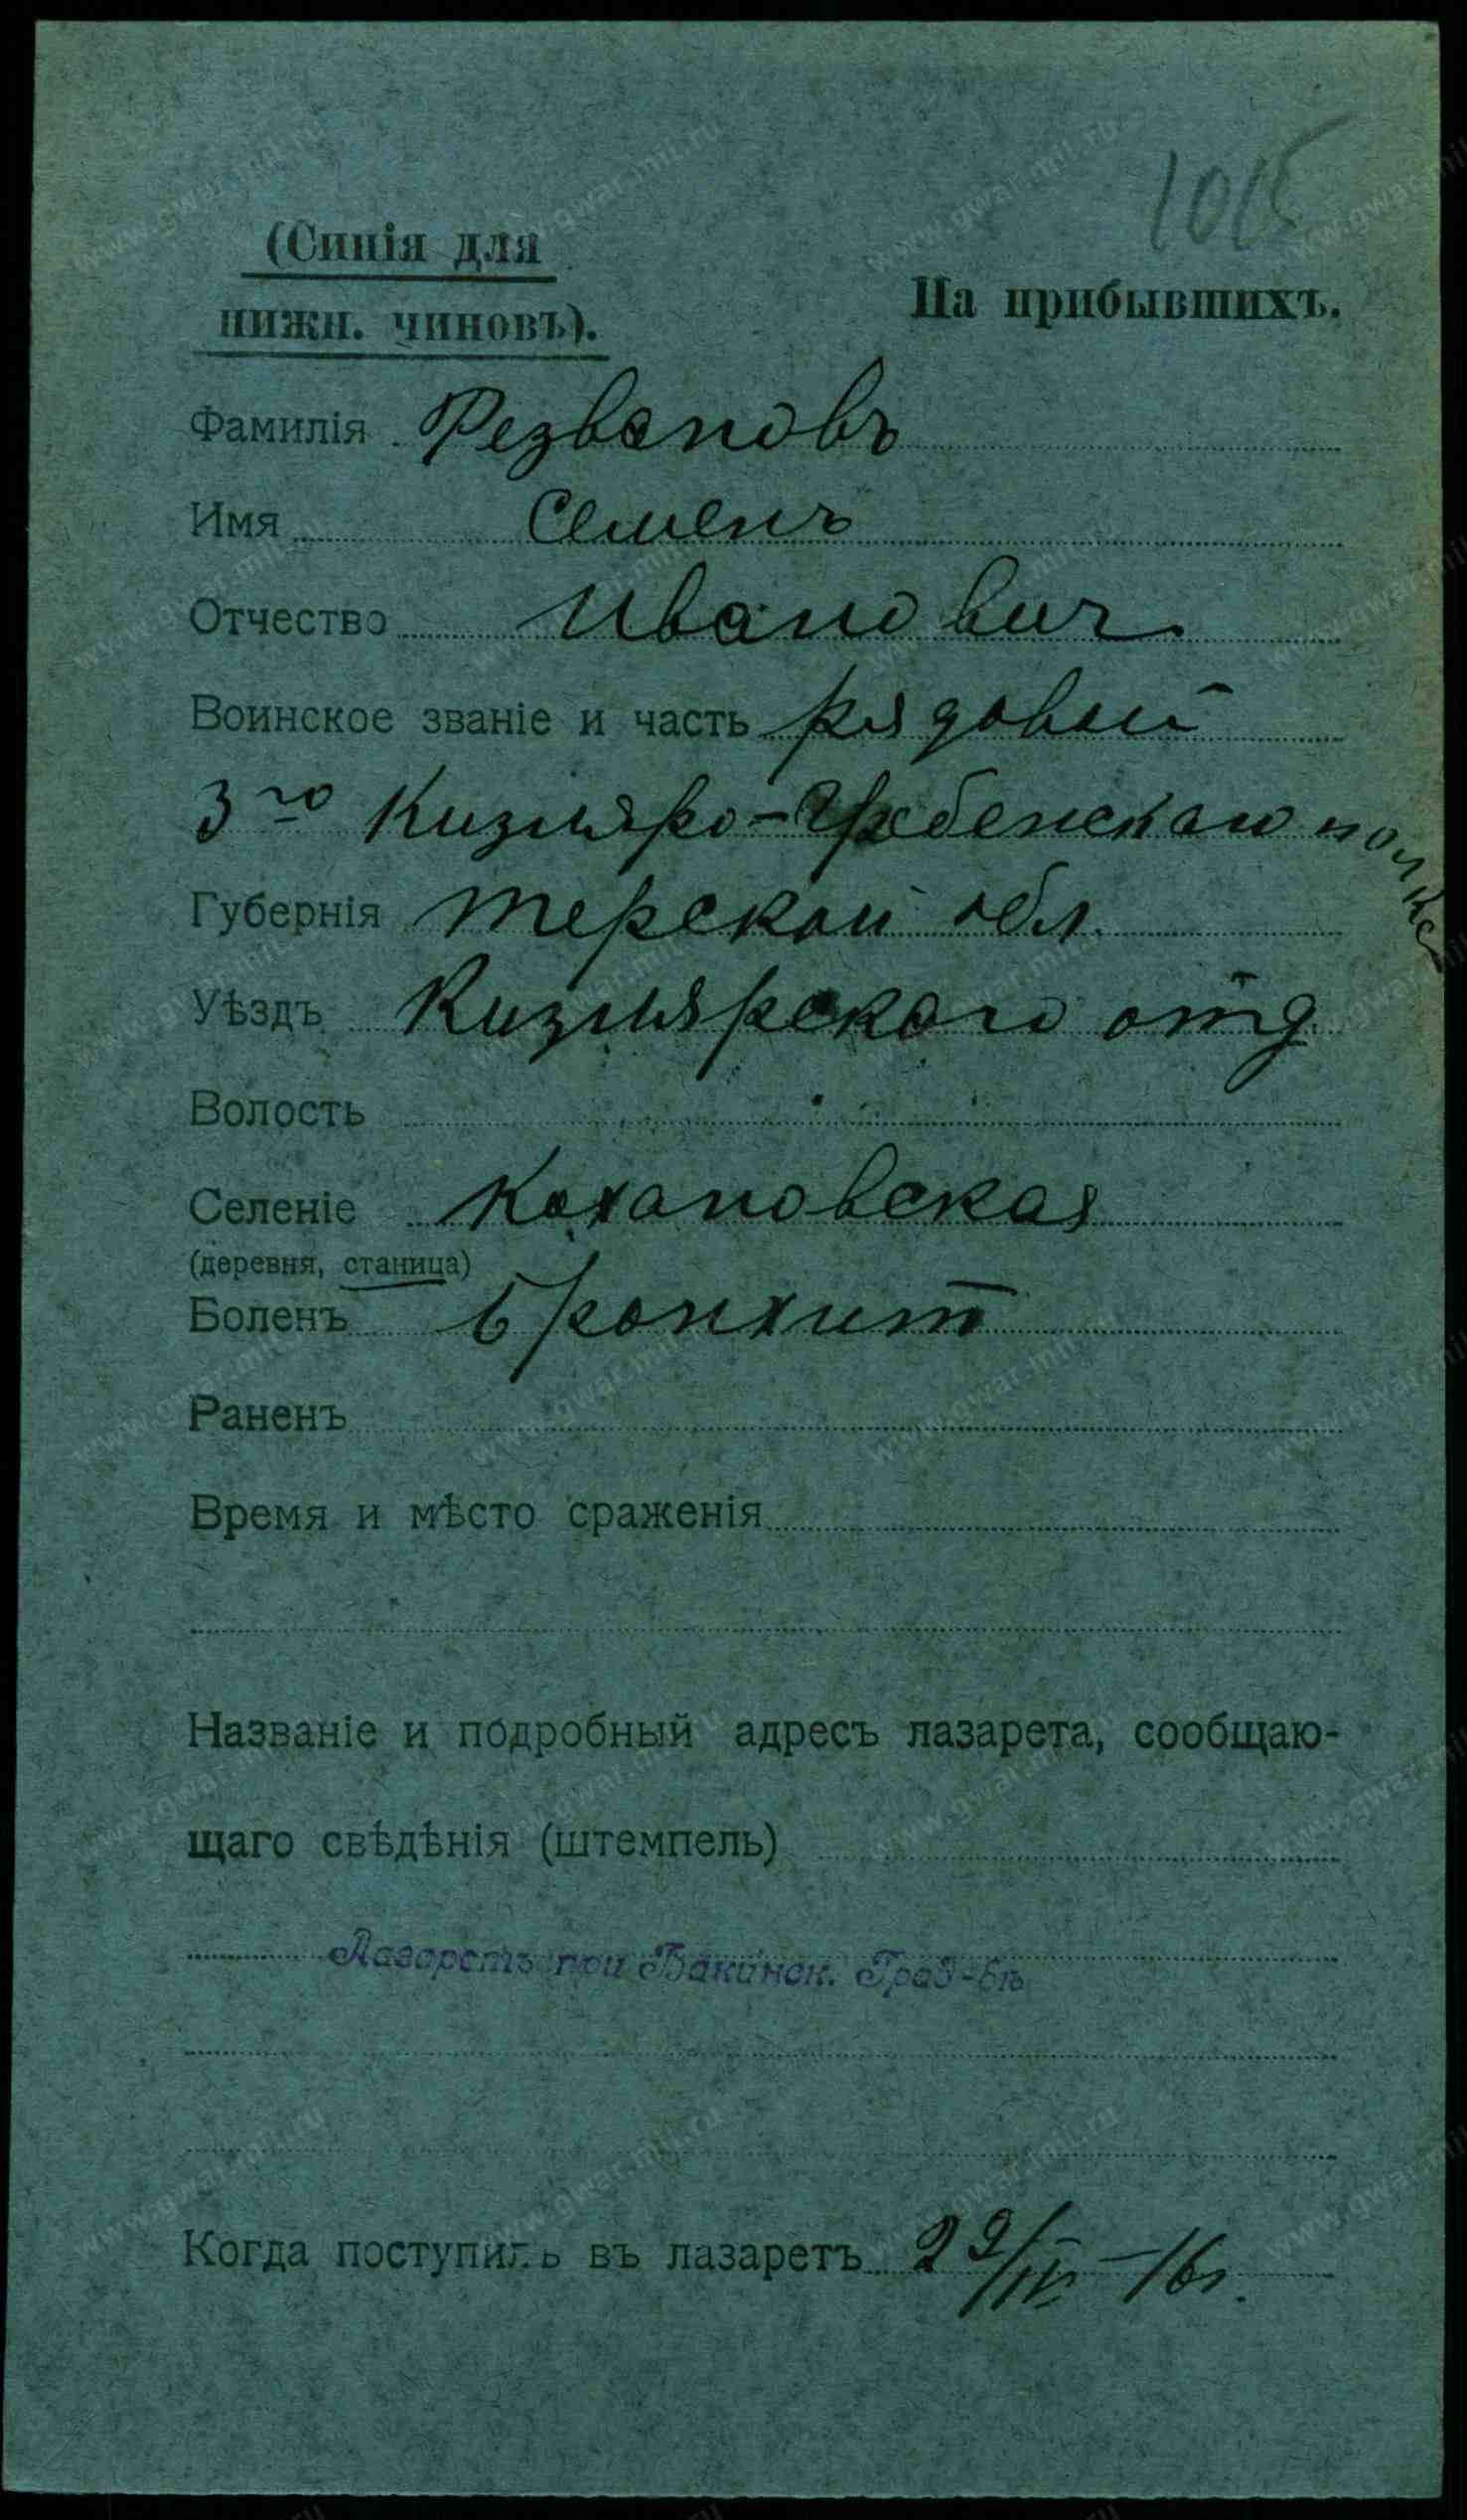 1015
(Синія для
нижн. чиновъ).
На прибывшихъ.
Фамилія Резвановъ
Имя Семенъ
Отчество Иванович
Воинское званіе и часть рядовой
3го Кизляро-Гребенскаго полка
Губернія Терской обл.
Уѣздъ Кизлярского отд.
Волость
Селеніе Кахановская
(деревня, станица)
Боленъ бронхит
Раненъ
Время и мѣсто сраженія
Названіе и подробный адресъ лазарета, сообщаю-
щаго свѣдѣнія (штемпель)
Лазаретъ при Бакинск. Град-вѣ
Когда поступилъ въ лазаретъ 29/IV-16г.